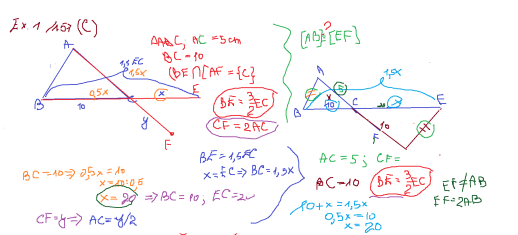 Ex 1 /157 (C)
A
1,5 EC
1,5x
B
0,5x
C
x
E
10
y
F
ΔABC, AC = 5 cm
BC = 10
(BE ∩ [AF = {C}
BE = 3/2 EC
CF = 2AC
BE = 1,5EC
x = EC ⇒ BC = 1,5x
BC = 10 ⇒ 0,5x = 10
x = 10:0,5
x = 20 ⇒ BC = 10, EC = 20
CF = y ⇒ AC = y/2
?
[AB] ∥ [EF]
1,5x
A
5
B
10
C
E
F
10
AC = 5; CF =
BC = 10
BE = 3/2 EC
EF ≠ AB
EF = 2AB
10 + x = 1,5x
0,5x = 10
x = 20